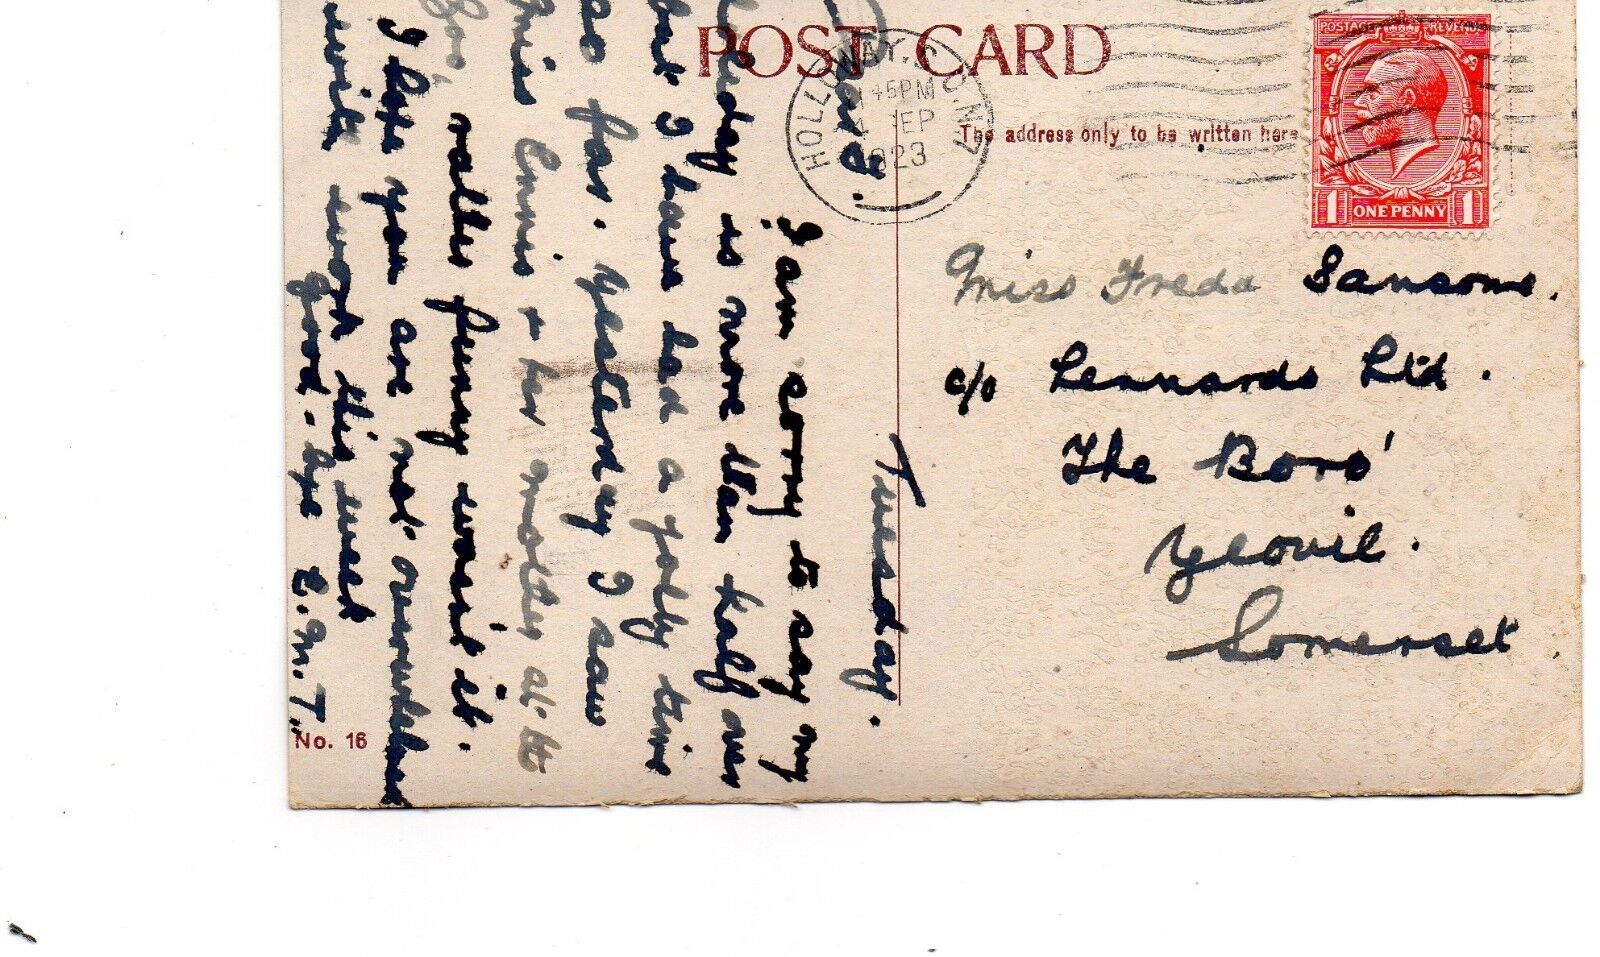 POST CARD
The address only to be written here
HOLLOWAY. N.7
45PM
4 SEP
1923
POSTAGE REVENUE
1 ONE PENNY 1
Miss Freda Sansome.
c/o Lennards Ltd.
The Boro'
Yeovil.
Somerset.
Tuesday.
I am sorry to say my
is more than half over
I have had a jolly time
so far. Yesterday I saw
Ennis & her mother at the
rather funny wasn't it.
I hope you are not overwhelmed
with work this week
good-bye E.M.T.
No. 16